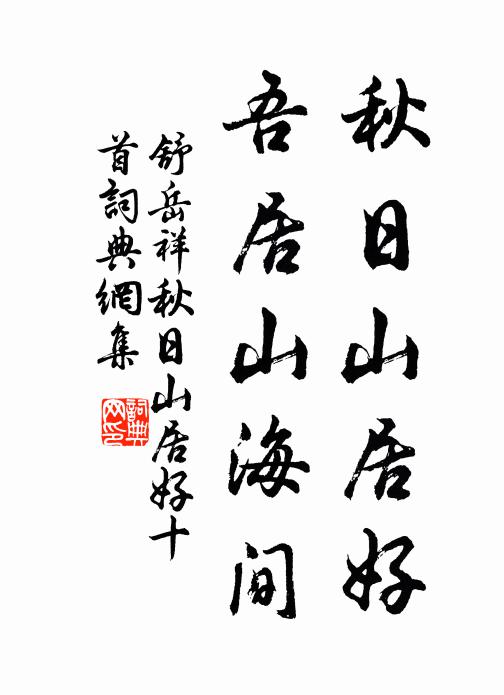 秋日山居好
吾居山海间
舒岳祥秋日山居好十
首詞典網集
詞典
网印